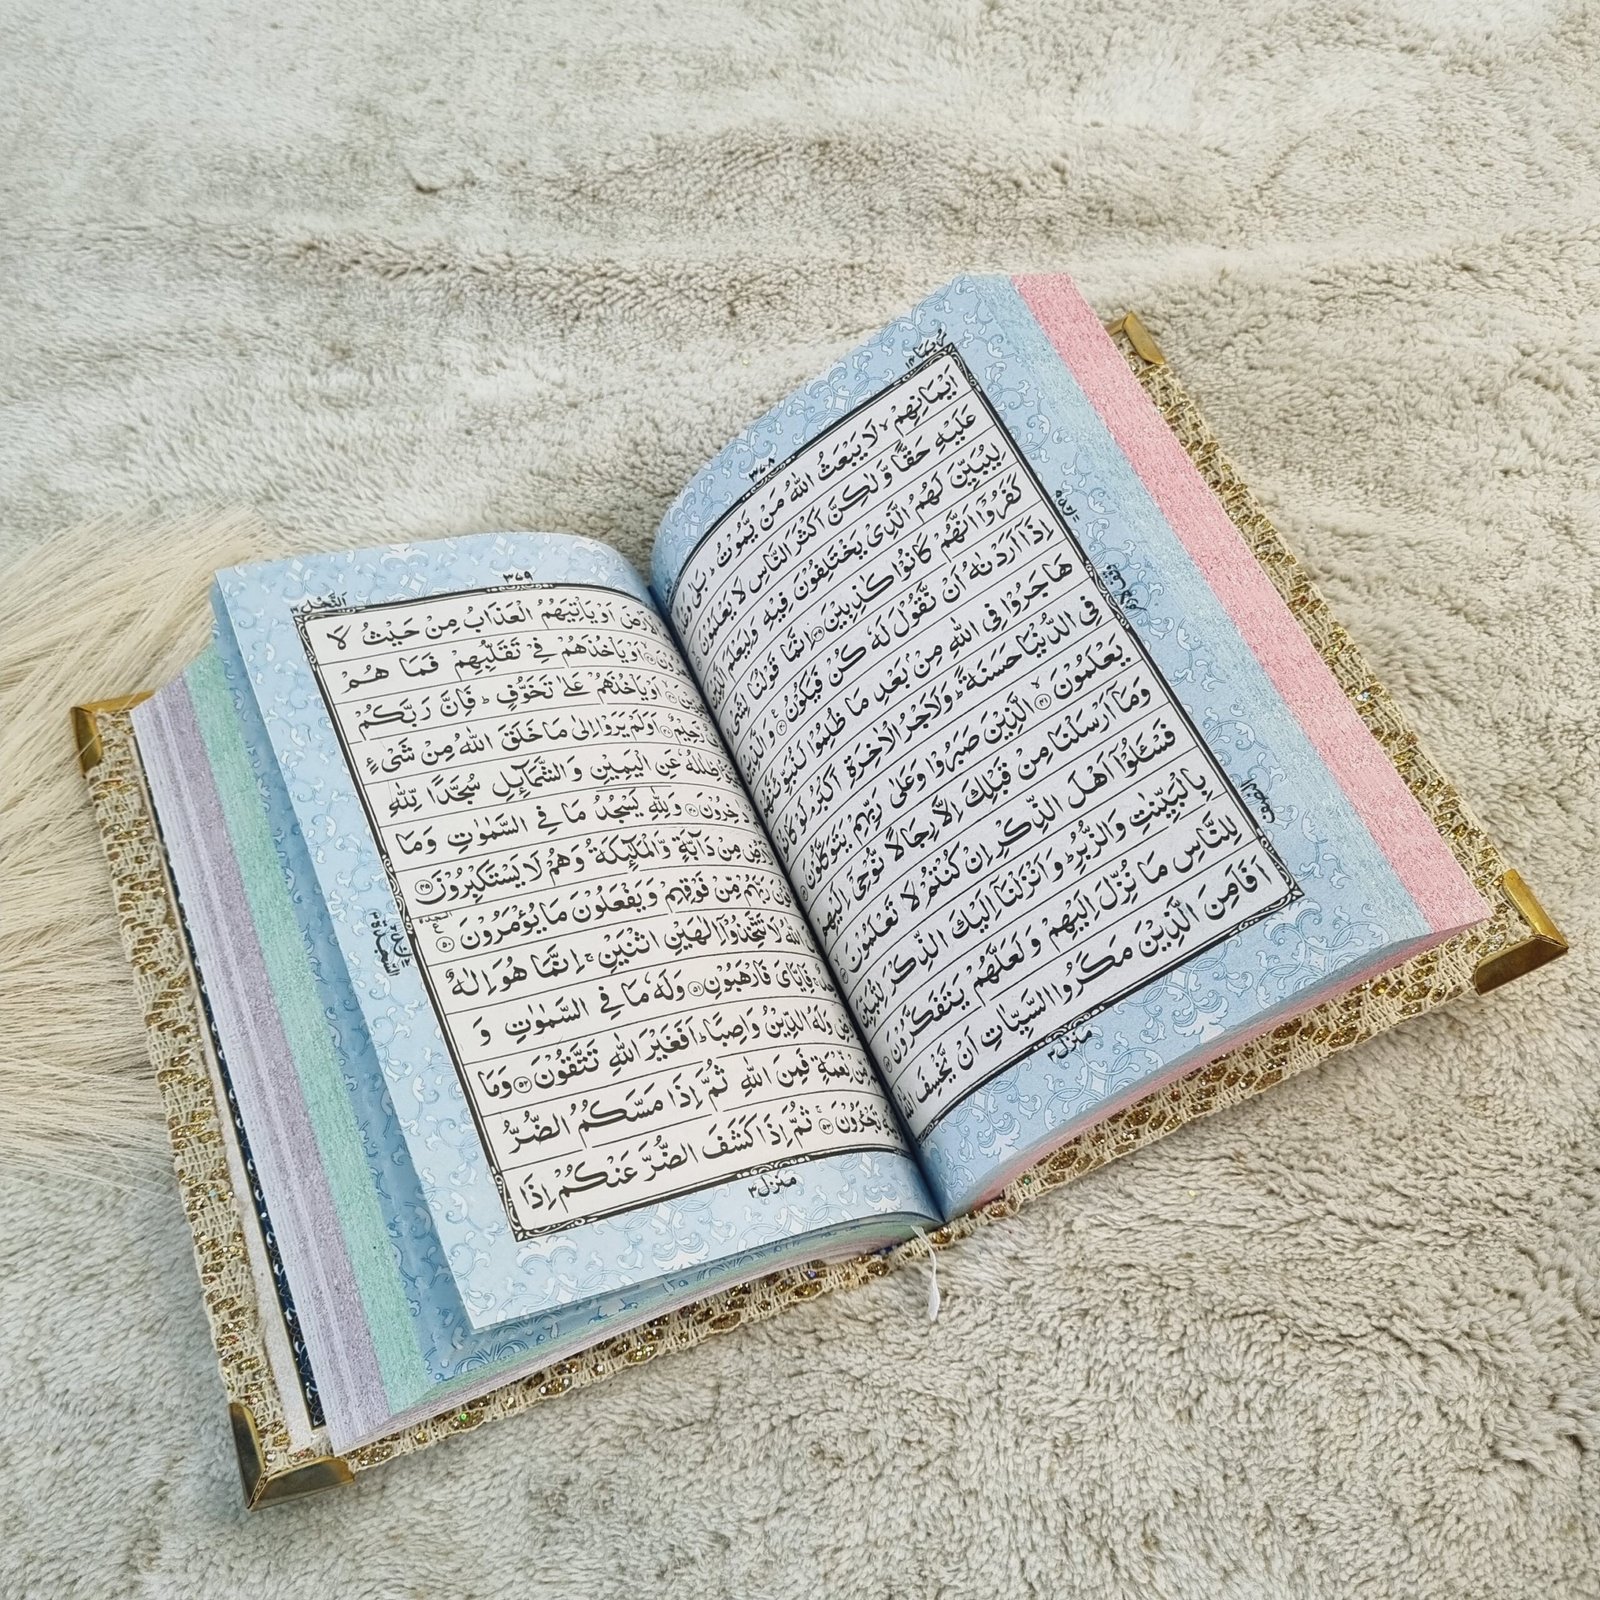 ربما ۱۴
۳۷۸
اَيْمَانِهِمْ ۙ لَا يَبْعَثُ اللّٰهُ مَنْ يَّمُوْتُ ؕ بَلٰى
عَلَيْهِ حَقًّا وَّلٰكِنَّ اَكْثَرَ النَّاسِ لَا يَعْلَمُوْنَ
لِيُبَيِّنَ لَهُمُ الَّذِيْ يَخْتَلِفُوْنَ فِيْهِ وَلِيَعْلَمَ الَّذِيْنَ
كَفَرُوْۤا اَنَّهُمْ كَانُوْا كٰذِبِيْنَ ۳۹ اِنَّمَا قَوْلُنَا لِشَيْءٍ
اِذَاۤ اَرَدْنٰهُ اَنْ نَّقُوْلَ لَهٗ كُنْ فَيَكُوْنُ ۴۰ وَالَّذِيْنَ
هَاجَرُوْا فِي اللّٰهِ مِنْۢ بَعْدِ مَا ظُلِمُوْا لَنُبَوِّئَنَّهُمْ
فِي الدُّنْيَا حَسَنَةً ؕ وَلَاَجْرُ الْاٰخِرَةِ اَكْبَرُ ۘ لَوْ كَانُوْا
يَعْلَمُوْنَ ۴۱ ۙ الَّذِيْنَ صَبَرُوْا وَعَلٰى رَبِّهِمْ يَتَوَكَّلُوْنَ
وَمَاۤ اَرْسَلْنَا مِنْ قَبْلِكَ اِلَّا رِجَالًا نُّوْحِيْۤ اِلَيْهِمْ
فَسْـَٔلُوْۤا اَهْلَ الذِّكْرِ اِنْ كُنْتُمْ لَا تَعْلَمُوْنَ
بِالْبَيِّنٰتِ وَالزُّبُرِ ؕ وَاَنْزَلْنَاۤ اِلَيْكَ الذِّكْرَ لِتُبَيِّنَ
لِلنَّاسِ مَا نُزِّلَ اِلَيْهِمْ وَلَعَلَّهُمْ يَتَفَكَّرُوْنَ
اَفَاَمِنَ الَّذِيْنَ مَكَرُوا السَّيِّاٰتِ اَنْ يَّخْسِفَ اللّٰهُ
منزل ۳
۳۷۹
النحل ۱۶
اَوْ يَاْتِيَهُمُ الْعَذَابُ مِنْ حَيْثُ لَا
اَوْ يَاْخُذَهُمْ فِيْ تَقَلُّبِهِمْ فَمَا هُمْ
اَوْ يَاْخُذَهُمْ عَلٰى تَخَوُّفٍ ؕ فَاِنَّ رَبَّكُمْ
رَّحِيْمٌ ۴۷ اَوَلَمْ يَرَوْا اِلٰى مَا خَلَقَ اللّٰهُ مِنْ شَيْءٍ
ظِلٰلُهٗ عَنِ الْيَمِيْنِ وَالشَّمَآئِلِ سُجَّدًا لِّلّٰهِ
۴۸ وَلِلّٰهِ يَسْجُدُ مَا فِي السَّمٰوٰتِ وَمَا
مِنْ دَآبَّةٍ وَّالْمَلٰٓئِكَةُ وَهُمْ لَا يَسْتَكْبِرُوْنَ ۴۹
رَبَّهُمْ مِّنْ فَوْقِهِمْ وَيَفْعَلُوْنَ مَا يُؤْمَرُوْنَ ۵۰
السجدة
اللّٰهُ لَا تَتَّخِذُوْۤا اِلٰهَيْنِ اثْنَيْنِ ۚ اِنَّمَا هُوَ اِلٰهٌ
فَاِيَّايَ فَارْهَبُوْنِ ۵۱ وَلَهٗ مَا فِي السَّمٰوٰتِ وَ
وَلَهُ الدِّيْنُ وَاصِبًا ؕ اَفَغَيْرَ اللّٰهِ تَتَّقُوْنَ ۵۲ وَمَا
مِّنْ نِّعْمَةٍ فَمِنَ اللّٰهِ ثُمَّ اِذَا مَسَّكُمُ الضُّرُّ
تَجْـَٔرُوْنَ ۵۳ ۚ ثُمَّ اِذَا كَشَفَ الضُّرَّ عَنْكُمْ اِذَا
منزل ۳